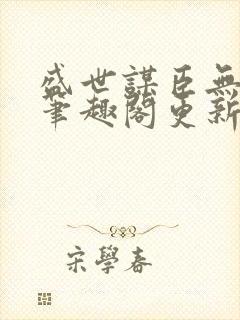 盛世謀臣無
筆趣閣更新
宋學春